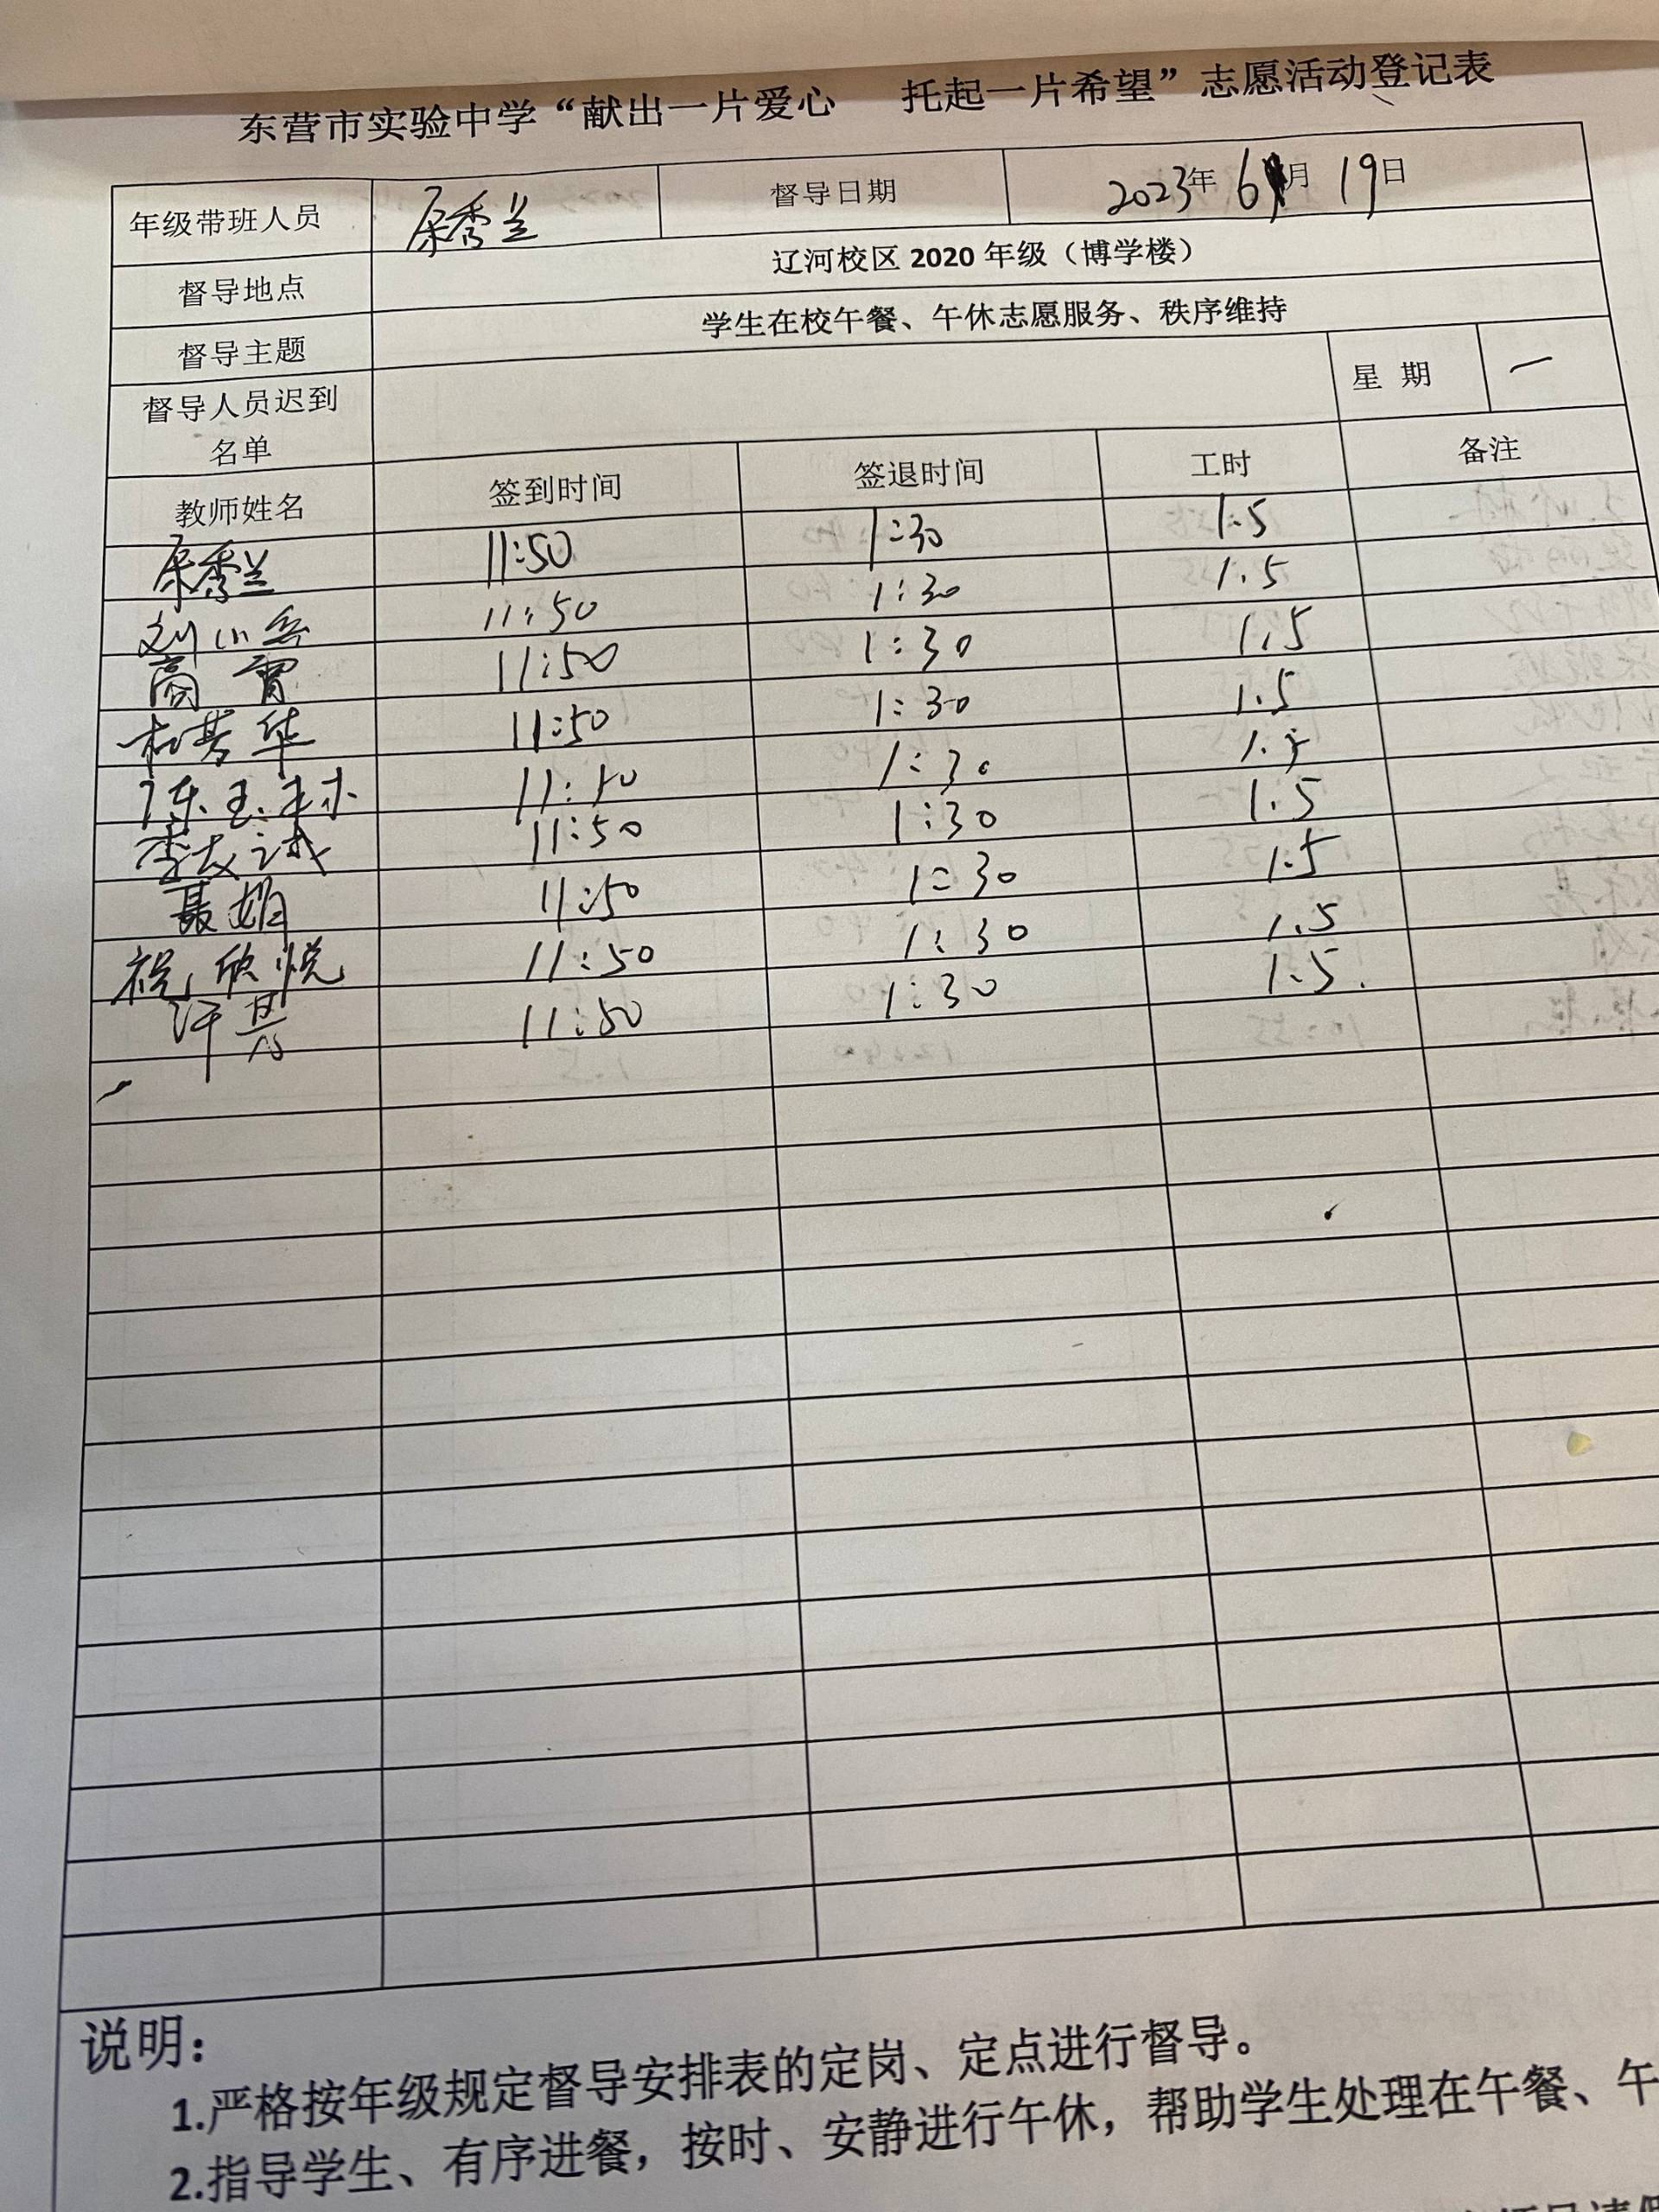 东营市实验中学“献出一片爱心 托起一片希望”志愿活动登记表
年级带班人员 秀兰 督导日期 2023年 6月 19日
督导地点 辽河校区 2020 年级（博学楼）
督导主题 学生在校午餐、午休志愿服务、秩序维持
督导人员迟到名单 星 期 一
教师姓名 签到时间 签退时间 工时 备注
秀兰 11:50 1:30 1.5
刘小 11:50 1:30 1.5
高 11:50 1:30 1.5
杜芳华 11:50 1:30 1.5
陈玉 1:30 1.5
李友诚 11:50 1:30 1.5
聂娟 11:50 1:30 1.5
祝欣悦 11:50 1:30 1.5
许 11:50 1:30 1.5
说明：
1.严格按年级规定督导安排表的定岗、定点进行督导。
2.指导学生、有序进餐，按时、安静进行午休，帮助学生处理在午餐、午